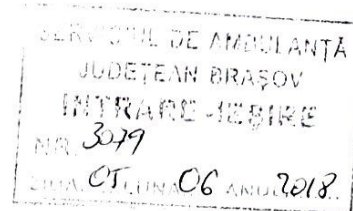 SERVICIUL DE AMBULANȚĂ
JUDEȚEAN BRAȘOV
INTRARE-IEȘIRE
NR. 3079
ZIUA 05 LUNA 06 ANUL 2018